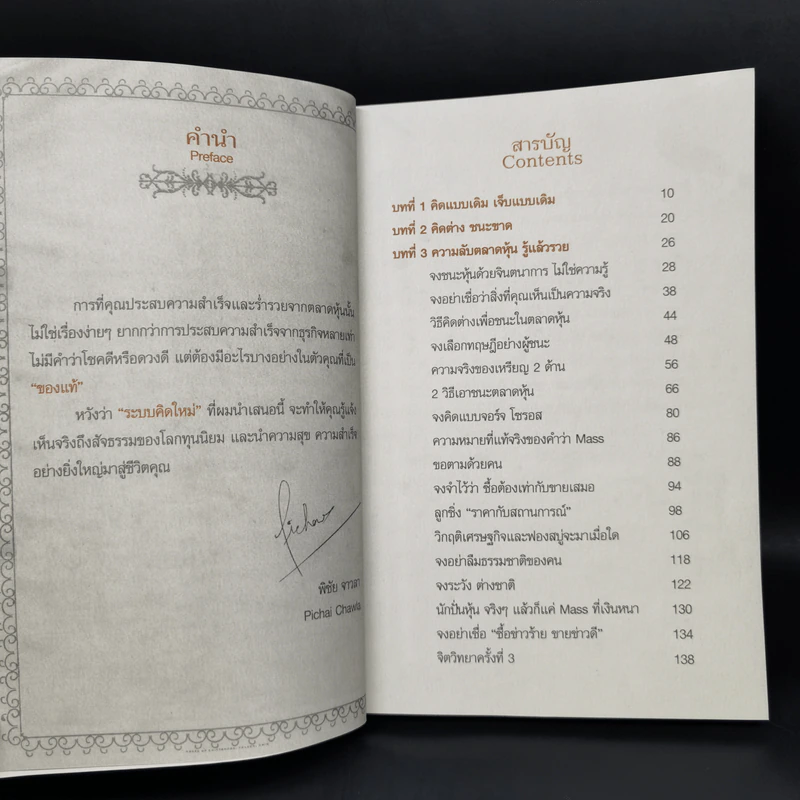 คำนำ
Preface
การที่คุณประสบความสำเร็จและร่ำรวยจากตลาดหุ้นนั้น
ไม่ใช่เรื่องง่ายๆ ยากกว่าการประสบความสำเร็จจากธุรกิจหลายเท่า
ไม่มีคำว่าโชคดีหรือดวงดี แต่ต้องมีอะไรบางอย่างในตัวคุณที่เป็น
“ของแท้”
หวังว่า “ระบบคิดใหม่” ที่ผมนำเสนอนี้ จะทำให้คุณรู้แจ้ง
เห็นจริงถึงสัจธรรมของโลกทุนนิยม และนำความสุข ความสำเร็จ
อย่างยิ่งใหญ่มาสู่ชีวิตคุณ
Pichai
พิชัย จาวลา
Pichai Chawla
สารบัญ
Contents
บทที่ 1 คิดแบบเดิม เจ็บแบบเดิม 10
บทที่ 2 คิดต่าง ชนะขาด 20
บทที่ 3 ความลับตลาดหุ้น รู้แล้วรวย 26
จงชนะหุ้นด้วยจินตนาการ ไม่ใช่ความรู้ 28
จงอย่าเชื่อว่าสิ่งที่คุณเห็นเป็นความจริง 38
วิธีคิดต่างเพื่อชนะในตลาดหุ้น 44
จงเลือกทฤษฎีอย่างผู้ชนะ 48
ความจริงของเหรียญ 2 ด้าน 56
2 วิธีเอาชนะตลาดหุ้น 66
จงคิดแบบจอร์จ โซรอส 80
ความหมายที่แท้จริงของคำว่า Mass 86
ขอตามด้วยคน 88
จงจำไว้ว่า ซื้อต้องเท่ากับขายเสมอ 94
ลูกชิ่ง “ราคากับสถานการณ์” 98
วิกฤติเศรษฐกิจและฟองสบู่จะมาเมื่อใด 106
จงอย่าลืมธรรมชาติของคน 118
จงระวัง ต่างชาติ 122
นักปั่นหุ้น จริงๆ แล้วก็แค่ Mass ที่เงินหนา 130
จงอย่าเชื่อ “ซื้อข่าวร้าย ขายข่าวดี” 134
จิตวิทยาครั้งที่ 3 138